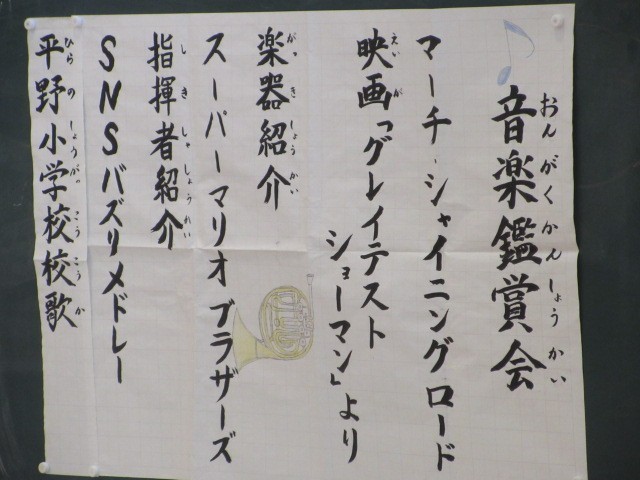 音楽鑑賞会
おんがくかんしょうかい
マーチ・シャイニング・ロード
映画「グレイテスト
えいが
ショーマン」より
楽器紹介
がっきしょうかい
スーパーマリオブラザーズ
指揮者紹介
しきしゃしょうれい
SNSバズリメドレー
平野小学校校歌
ひらのしょうがっこうこうか